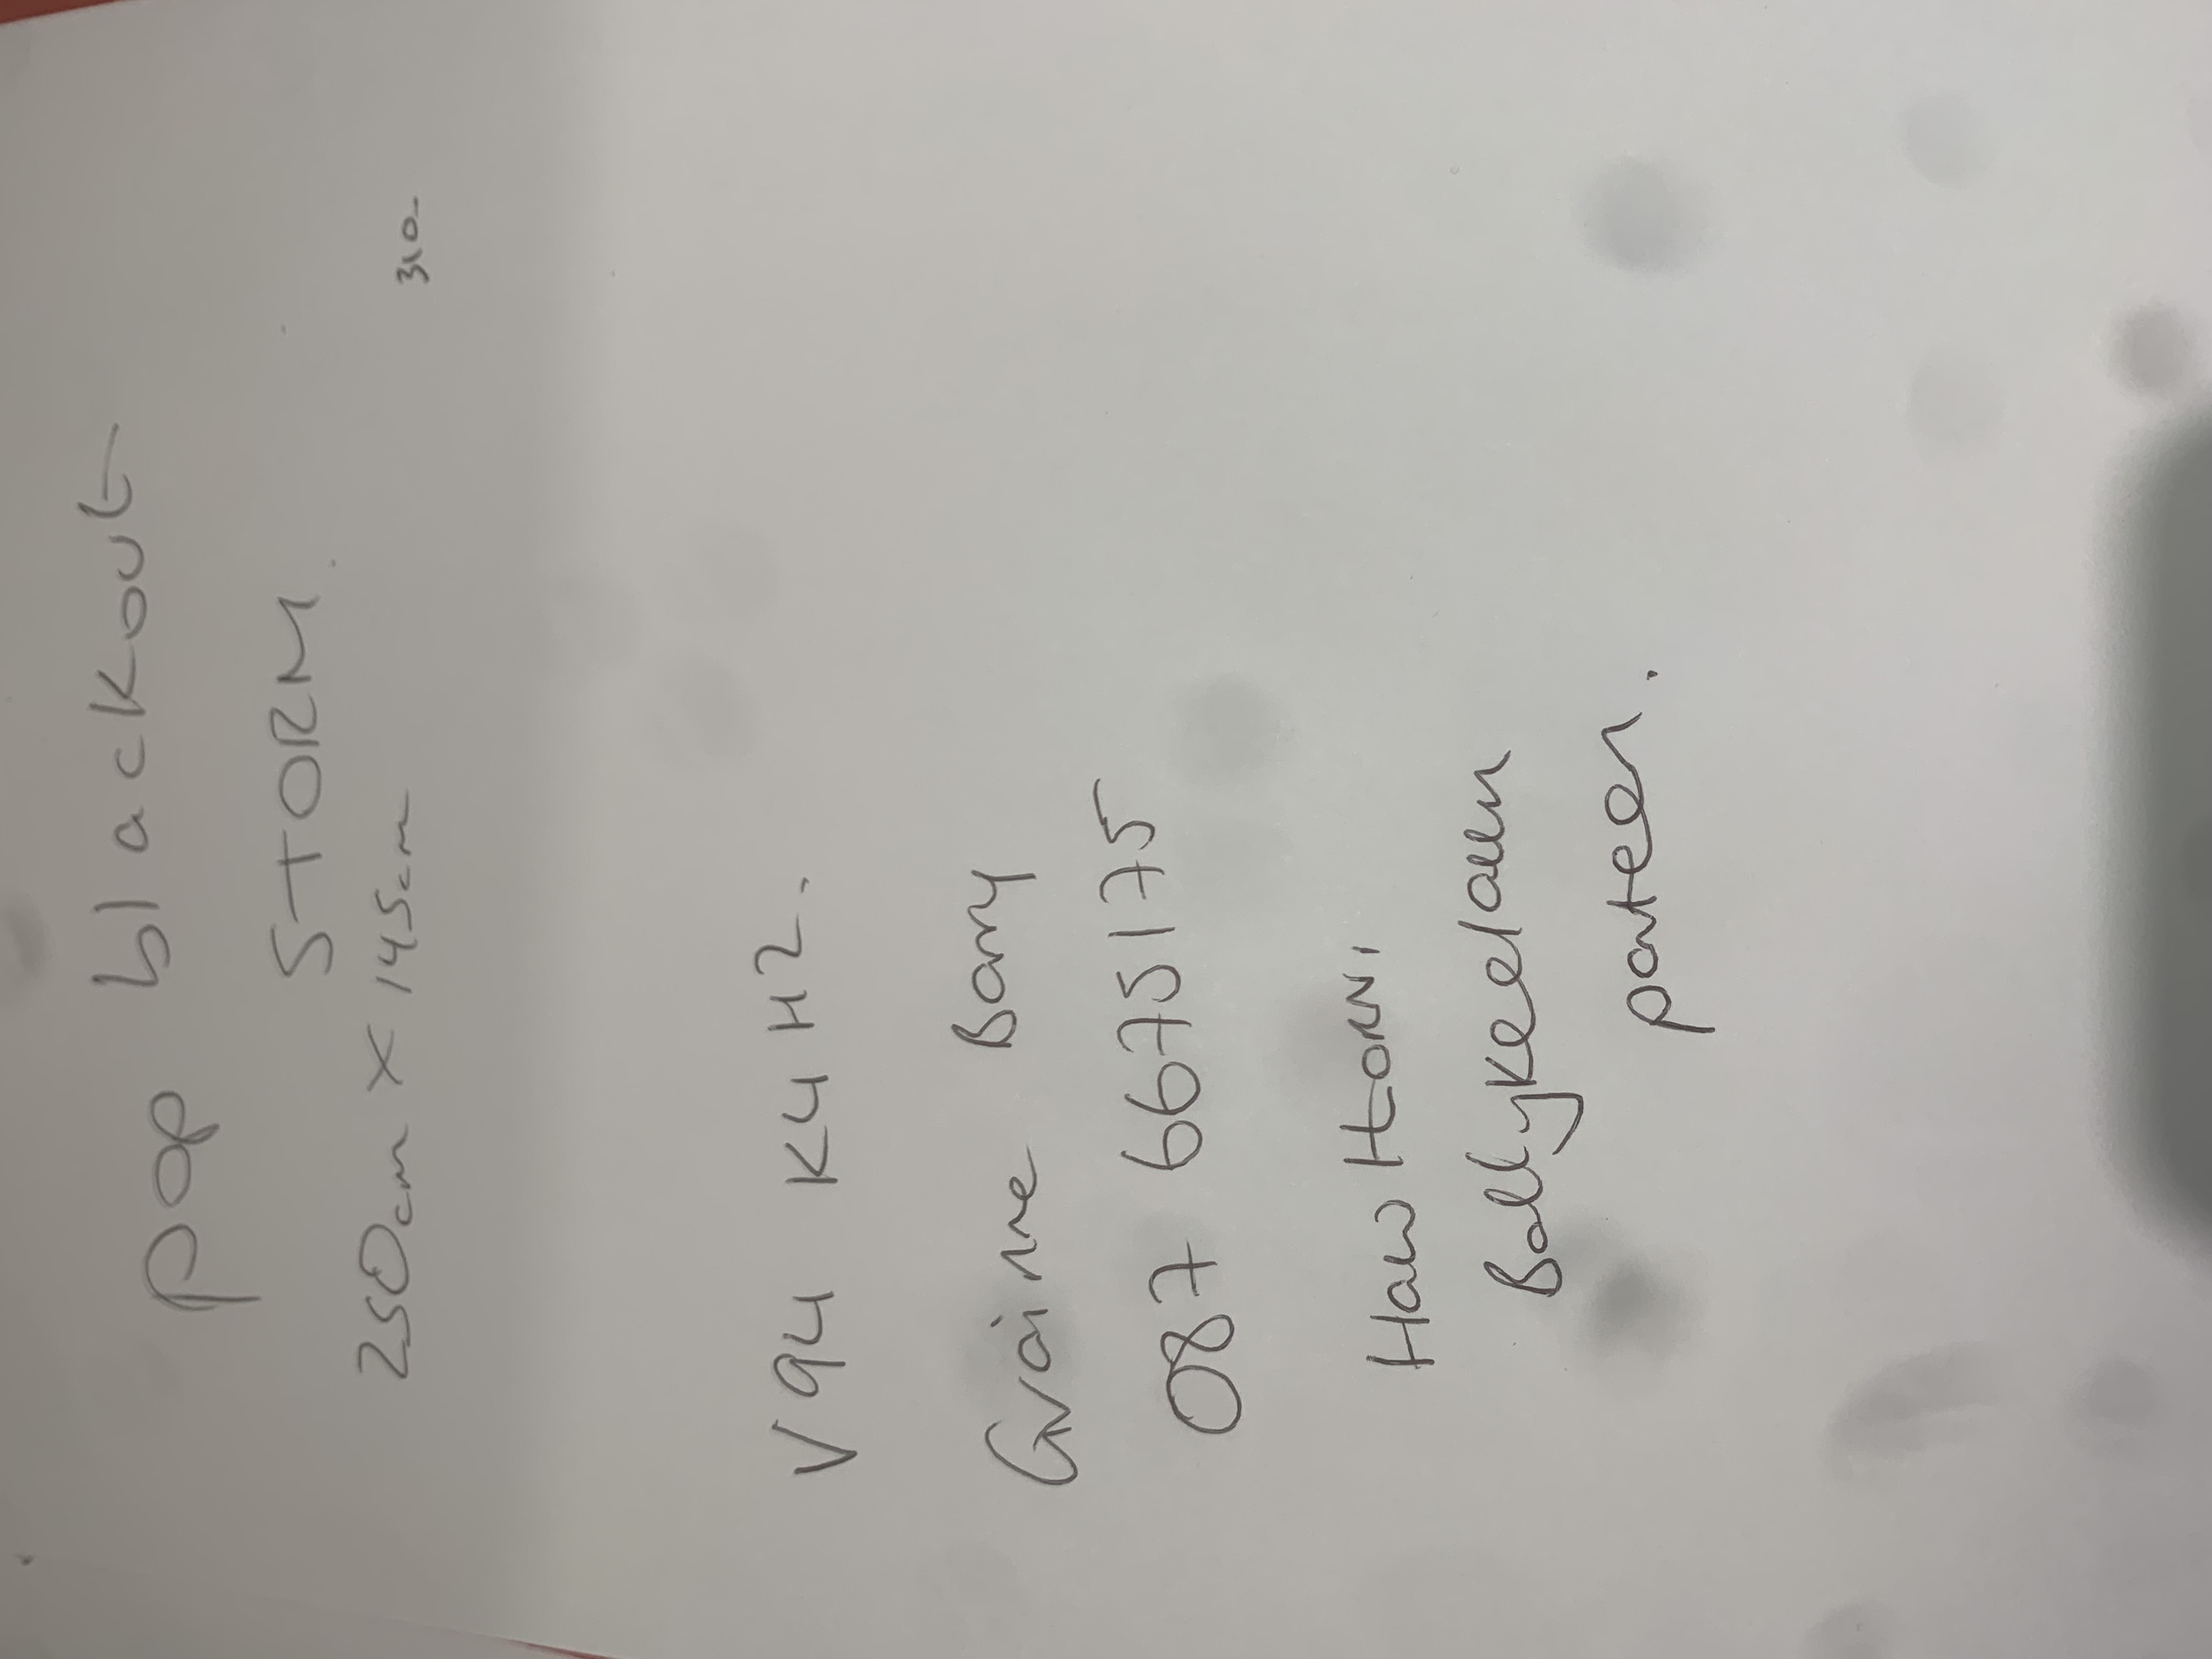 pop blackout
STORM
250cm X 145cm
310-
V94 K4H2.
Gráinne Barry
087 6675175
Haw HORN,
Ballykeelaun
parteen.